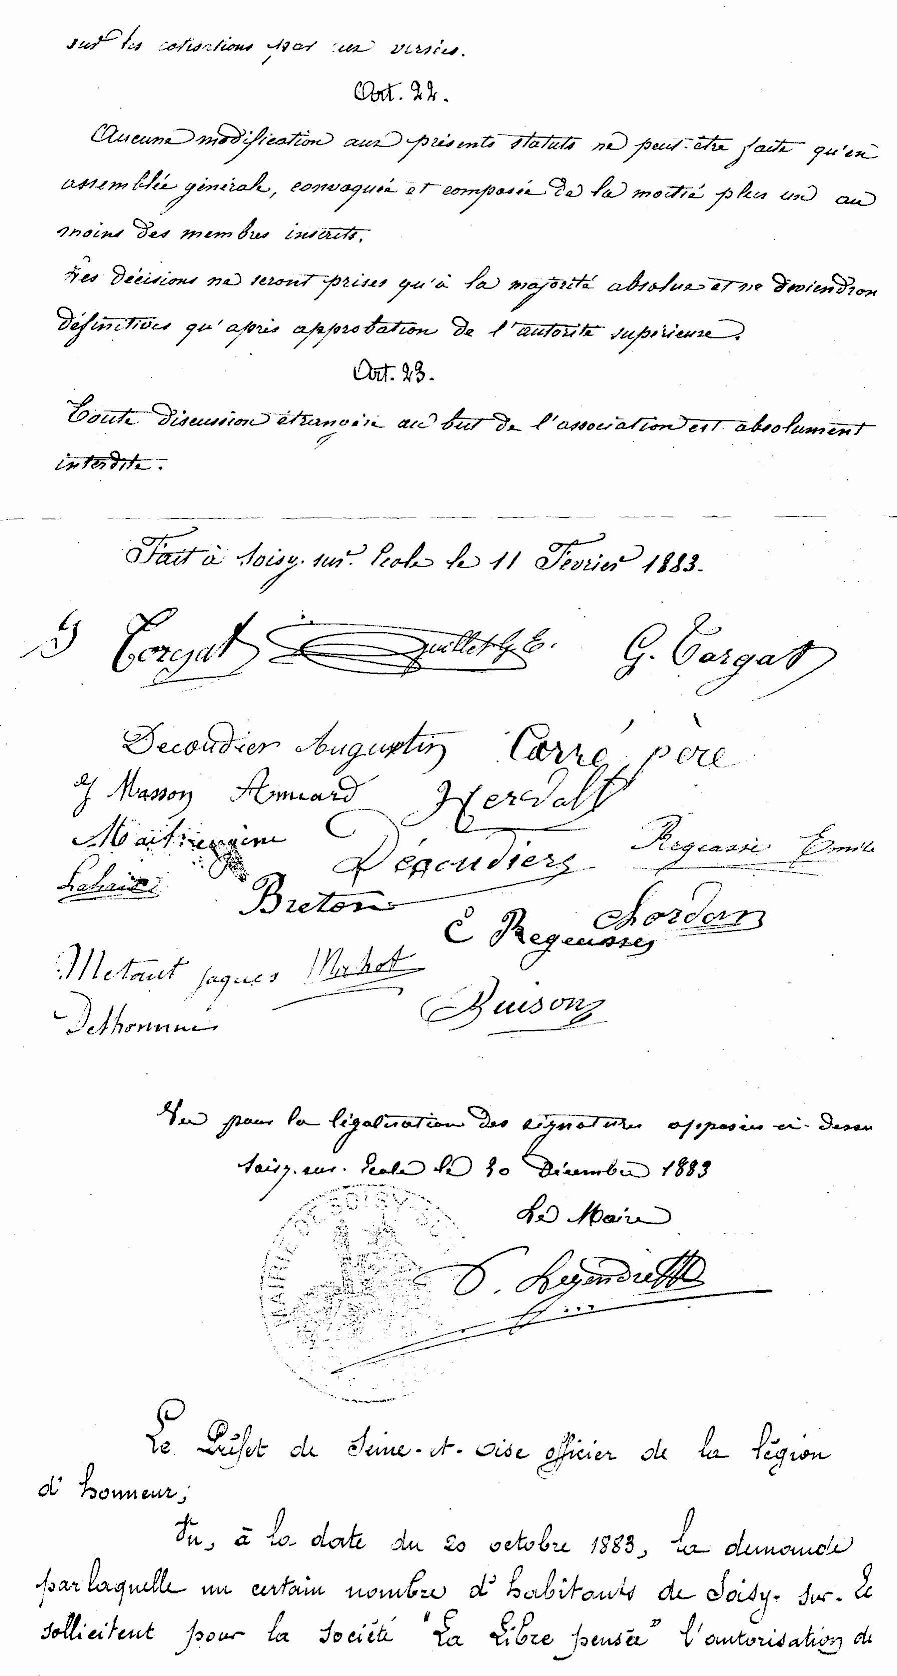 sur les cotisations par eux versées.
Art. 22.
Aucune modification aux présents statuts ne peut-être faite qu'en
assemblée générale, convoquée et composée de la moitié plus un au
moins des membres inscrits.
Les décisions ne seront prises qu'à la majorité absolue et ne deviendron
définitives qu'après approbation de l'autorité supérieure.
Art. 23.
Toute discussion étrangère au but de l'association est absolument
interdite.
Fait à Soisy-sur-Ecole le 11 Février 1883.
Torgat Quillet G. E. G. Targat
Decoudier Augustin Carré père
Masson Armand
Découdier Regeasse Emile
Breton Chordan
E Regeasse
Metaut Jaques
Buison
Vu pour la légalisation des signatures apposées ci-dessu
Soisy-sur-Ecole le 30 Décembre 1883
Le Maire
Legendre
MAIRIE DE SOISY-S
Le Préfet de Seine-et-Oise officier de la légion
d'honneur;
Vu, à la date du 20 octobre 1883, la demande
par laquelle un certain nombre d'habitants de Soisy-sur-Ec
sollicitent pour la société "La Libre pensée" l'autorisation de